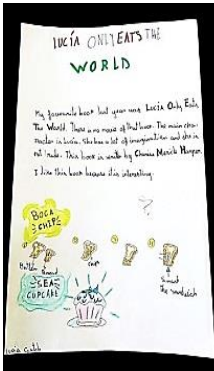 LUCÍA ONLY EATS THE
WORLD
My favourite book last year was Lucía Only Eats
The World. There is no more of that book. The main cha-
racter is Lucía. She has a lot of imagination and she is
not rude. This book is written by
I like this book because it is interesting.
BOCA
CHIPS
chips
SEA
CUPCAKE
The sandwich
Lucía